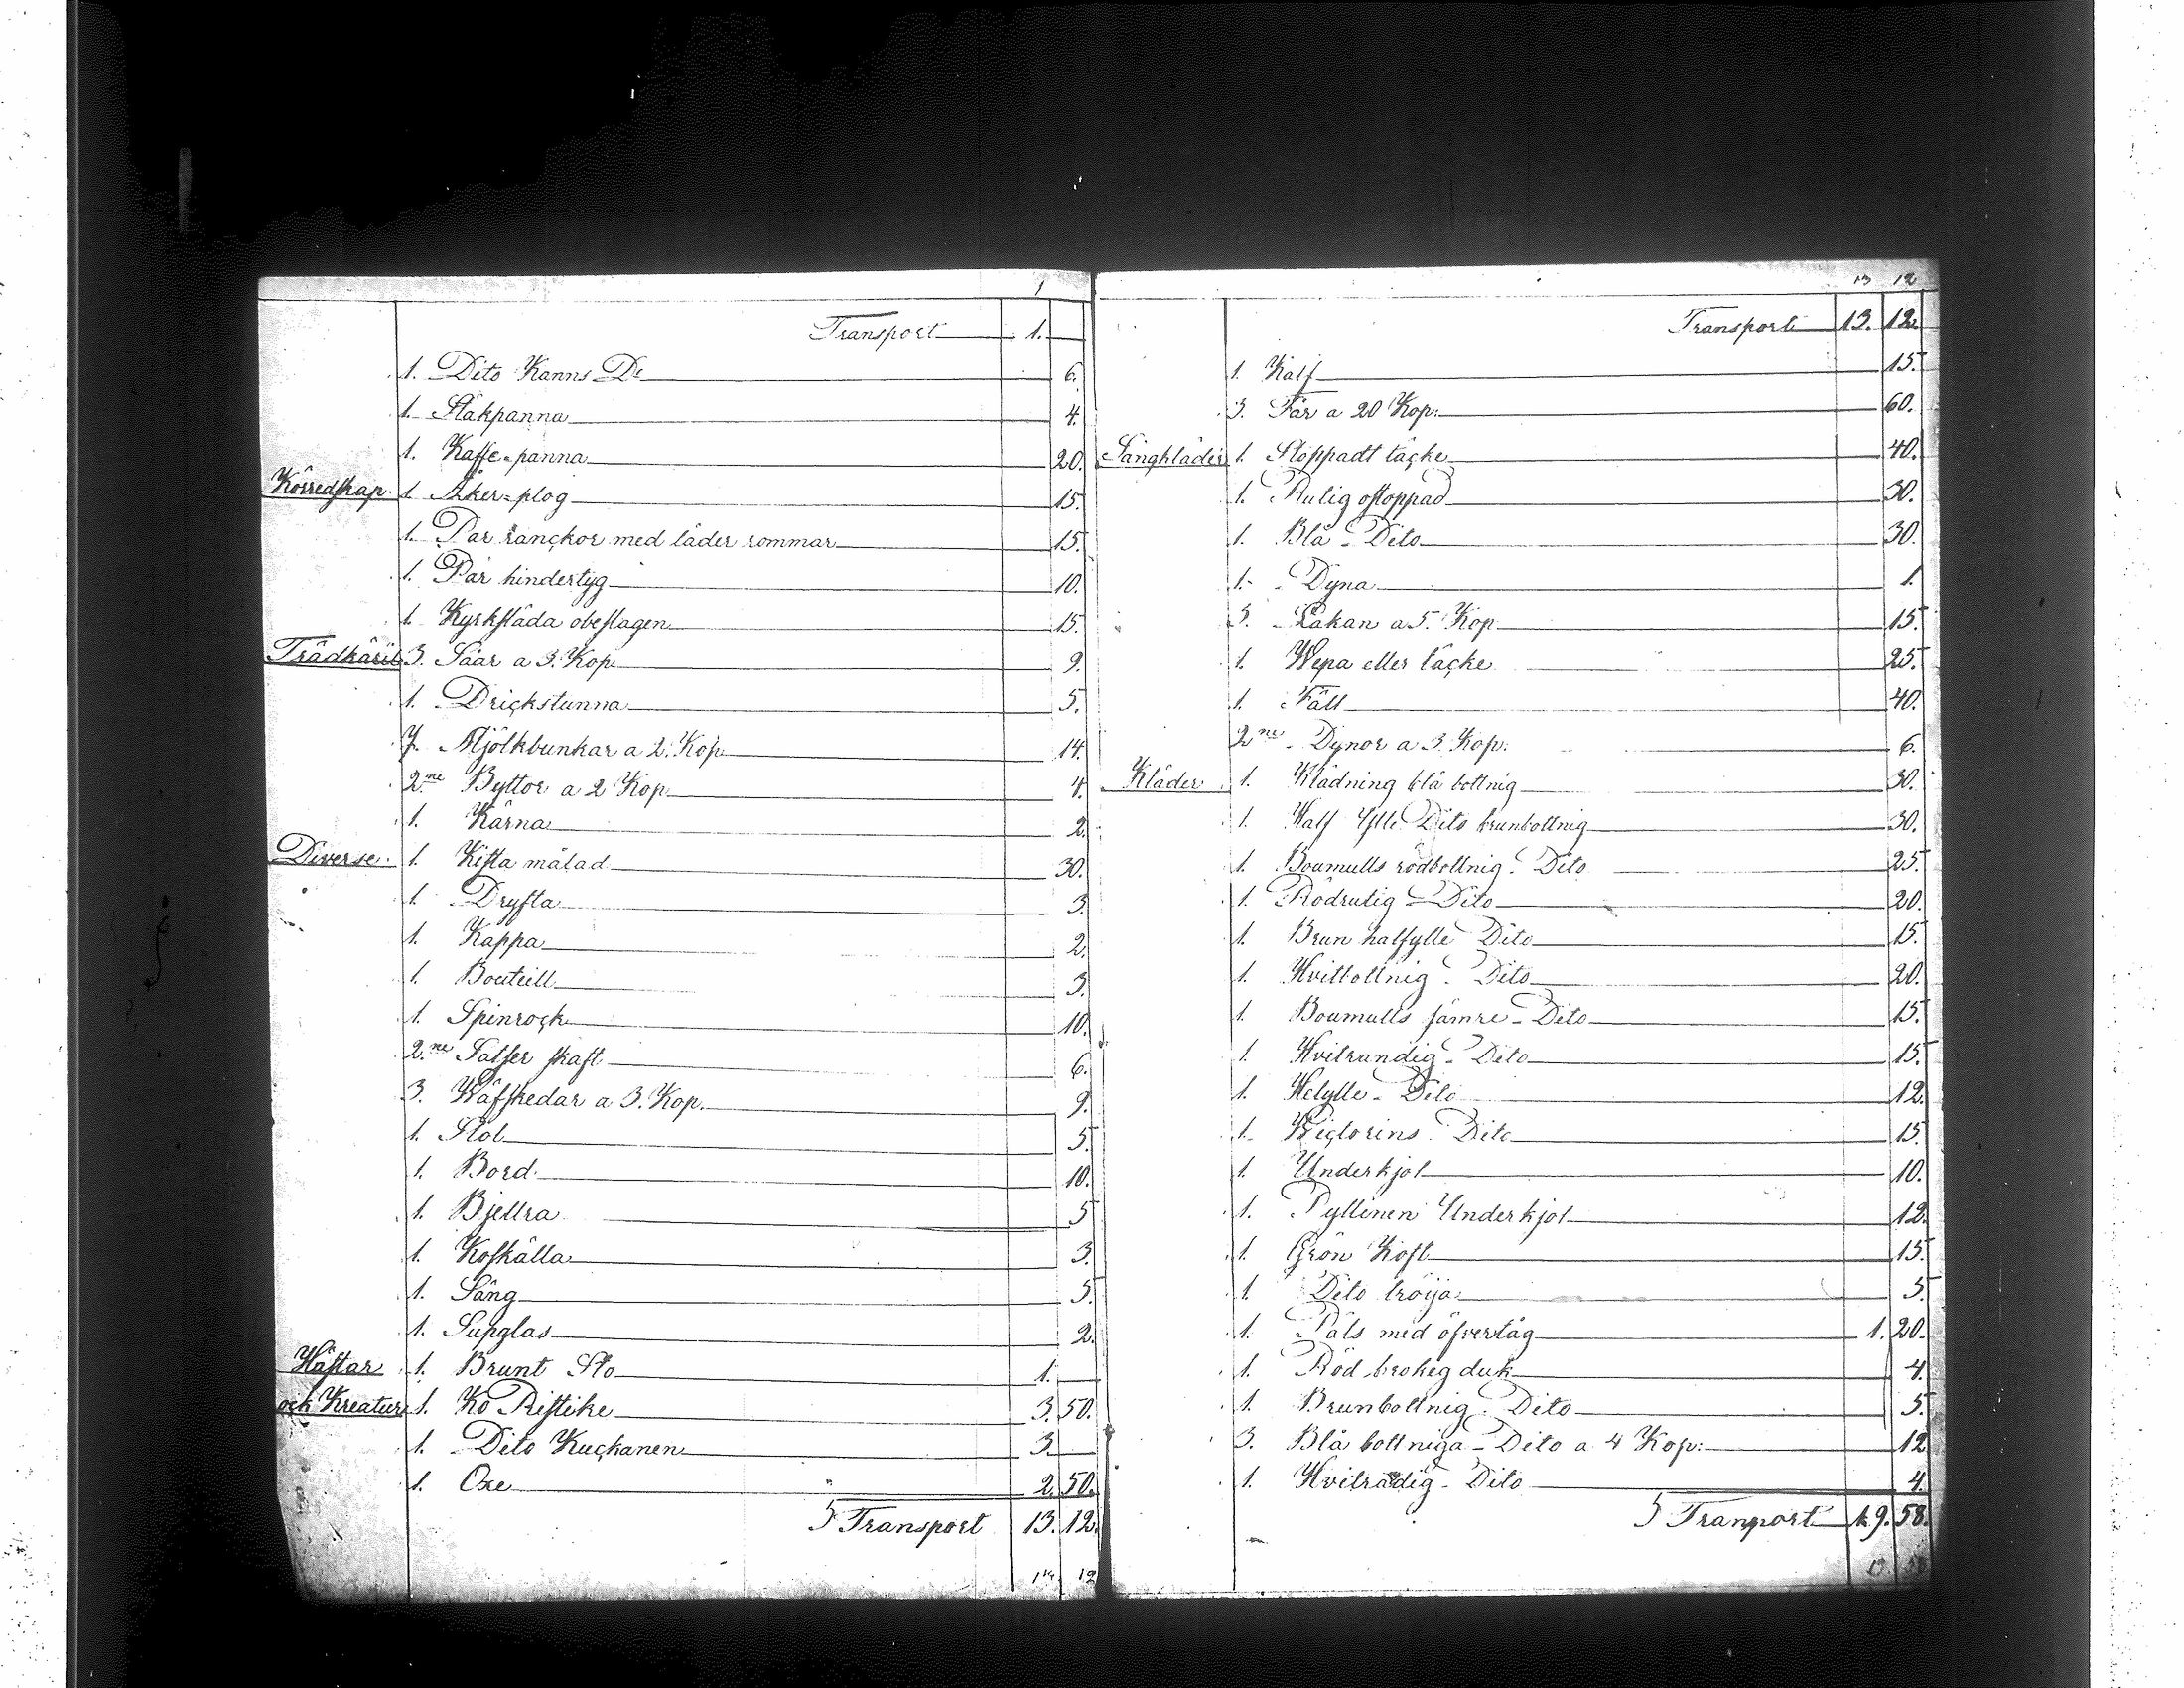 1
Transport 1.
1. Dito Kanns De 6.
1. Stäkpanna 4.
1. Kaffe-panna 20.
Körredskap. 1. Åker-plog 15.
1. Par ränckor med läder rommar 15.
1. Par hindertyg 10.
1. Kyrksläda obeslagen 15.
Trädkäril 3. Såar a 3. Kop. 9.
1. Drickstunna 5.
7. Mjölkbunkar a 2. Kop. 14.
2ne Byttor a 2 Kop 4.
1. Kärna 2.
Diverse. 1. Kista målad 30.
1. Dryfta 3.
1. Kappa 2.
1. Bouteill 3.
1. Spinrock 10.
2.ne Satser skaft 6.
3. Wäfskedar a 3. Kop. 9.
1. Stol 5
1. Bord 10.
1. Bjellra 5
1. Koskälla 3.
1. Säng 5.
1. Supglas 2.
Hästar 1. Brunt Sto 1.
och Kreatur 1. Ko Ristike 3. 50.
1. Dito Kuckanen 3.
1. Oxe 2. 50.
Transport 13. 12.
14 12
13 12
Transport 13. 12.
1. Kalf 15.
3. Får a 20 Kop. 60.
Sängkläder 1. Stoppadt täcke 40.
1. Rutig ostoppad 30.
1. Blå - Dito 30.
1. - Dyna 1.
3. Lakan a 5. Kop 15.
1. Wepa eller täcke 25.
1. Fäll 40.
2ne - Dynor a 3 Kop. 6.
Kläder 1. Klädning blå bottnig 30.
1. Half Ylle Dito brunbottnig 30.
1. Boumulls rödbottnig. Dito 25
1. Rödrutig - Dito 20.
1. Brun halfylle Dito 15.
1. Hvitbottnig. Dito 20.
1. Boumulls sämre - Dito 15.
1. Hvitrandig - Dito 15.
1. Helylle - Dito 12.
1. Wictorins. Dito 15
1. Underkjol 10.
1. Pyllinen Underkjol 12.
1. Grön Koft 15.
1. Dito tröija 5.
1. Päls med öfvertåg 1. 20.
1. Röd brokeg duk 4.
1. Brunbottnig. Dito 5.
3. Blå bottniga - Dito a 4 Kop: 12
1. Hvitradig - Dito 4.
Tranport 19. 58.